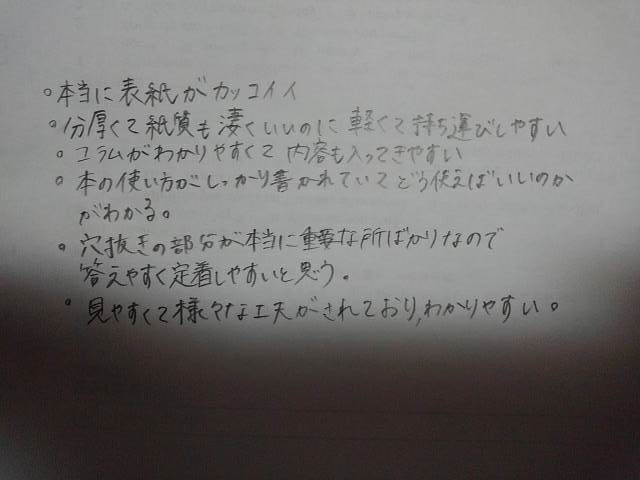 。本当に表紙がカッコイイ
。分厚くて紙質も凄くいいのに軽くて持ち運びしやすい
。コラムがわかりやすくて内容も入ってきやすい
。本の使い方がしっかり書かれていてどう使えばいいのか
がわかる。
。穴抜きの部分が本当に重要な所ばかりなので
答えやすく定着しやすいと思う。
。見やすくて様々な工夫がされており,わかりやすい。